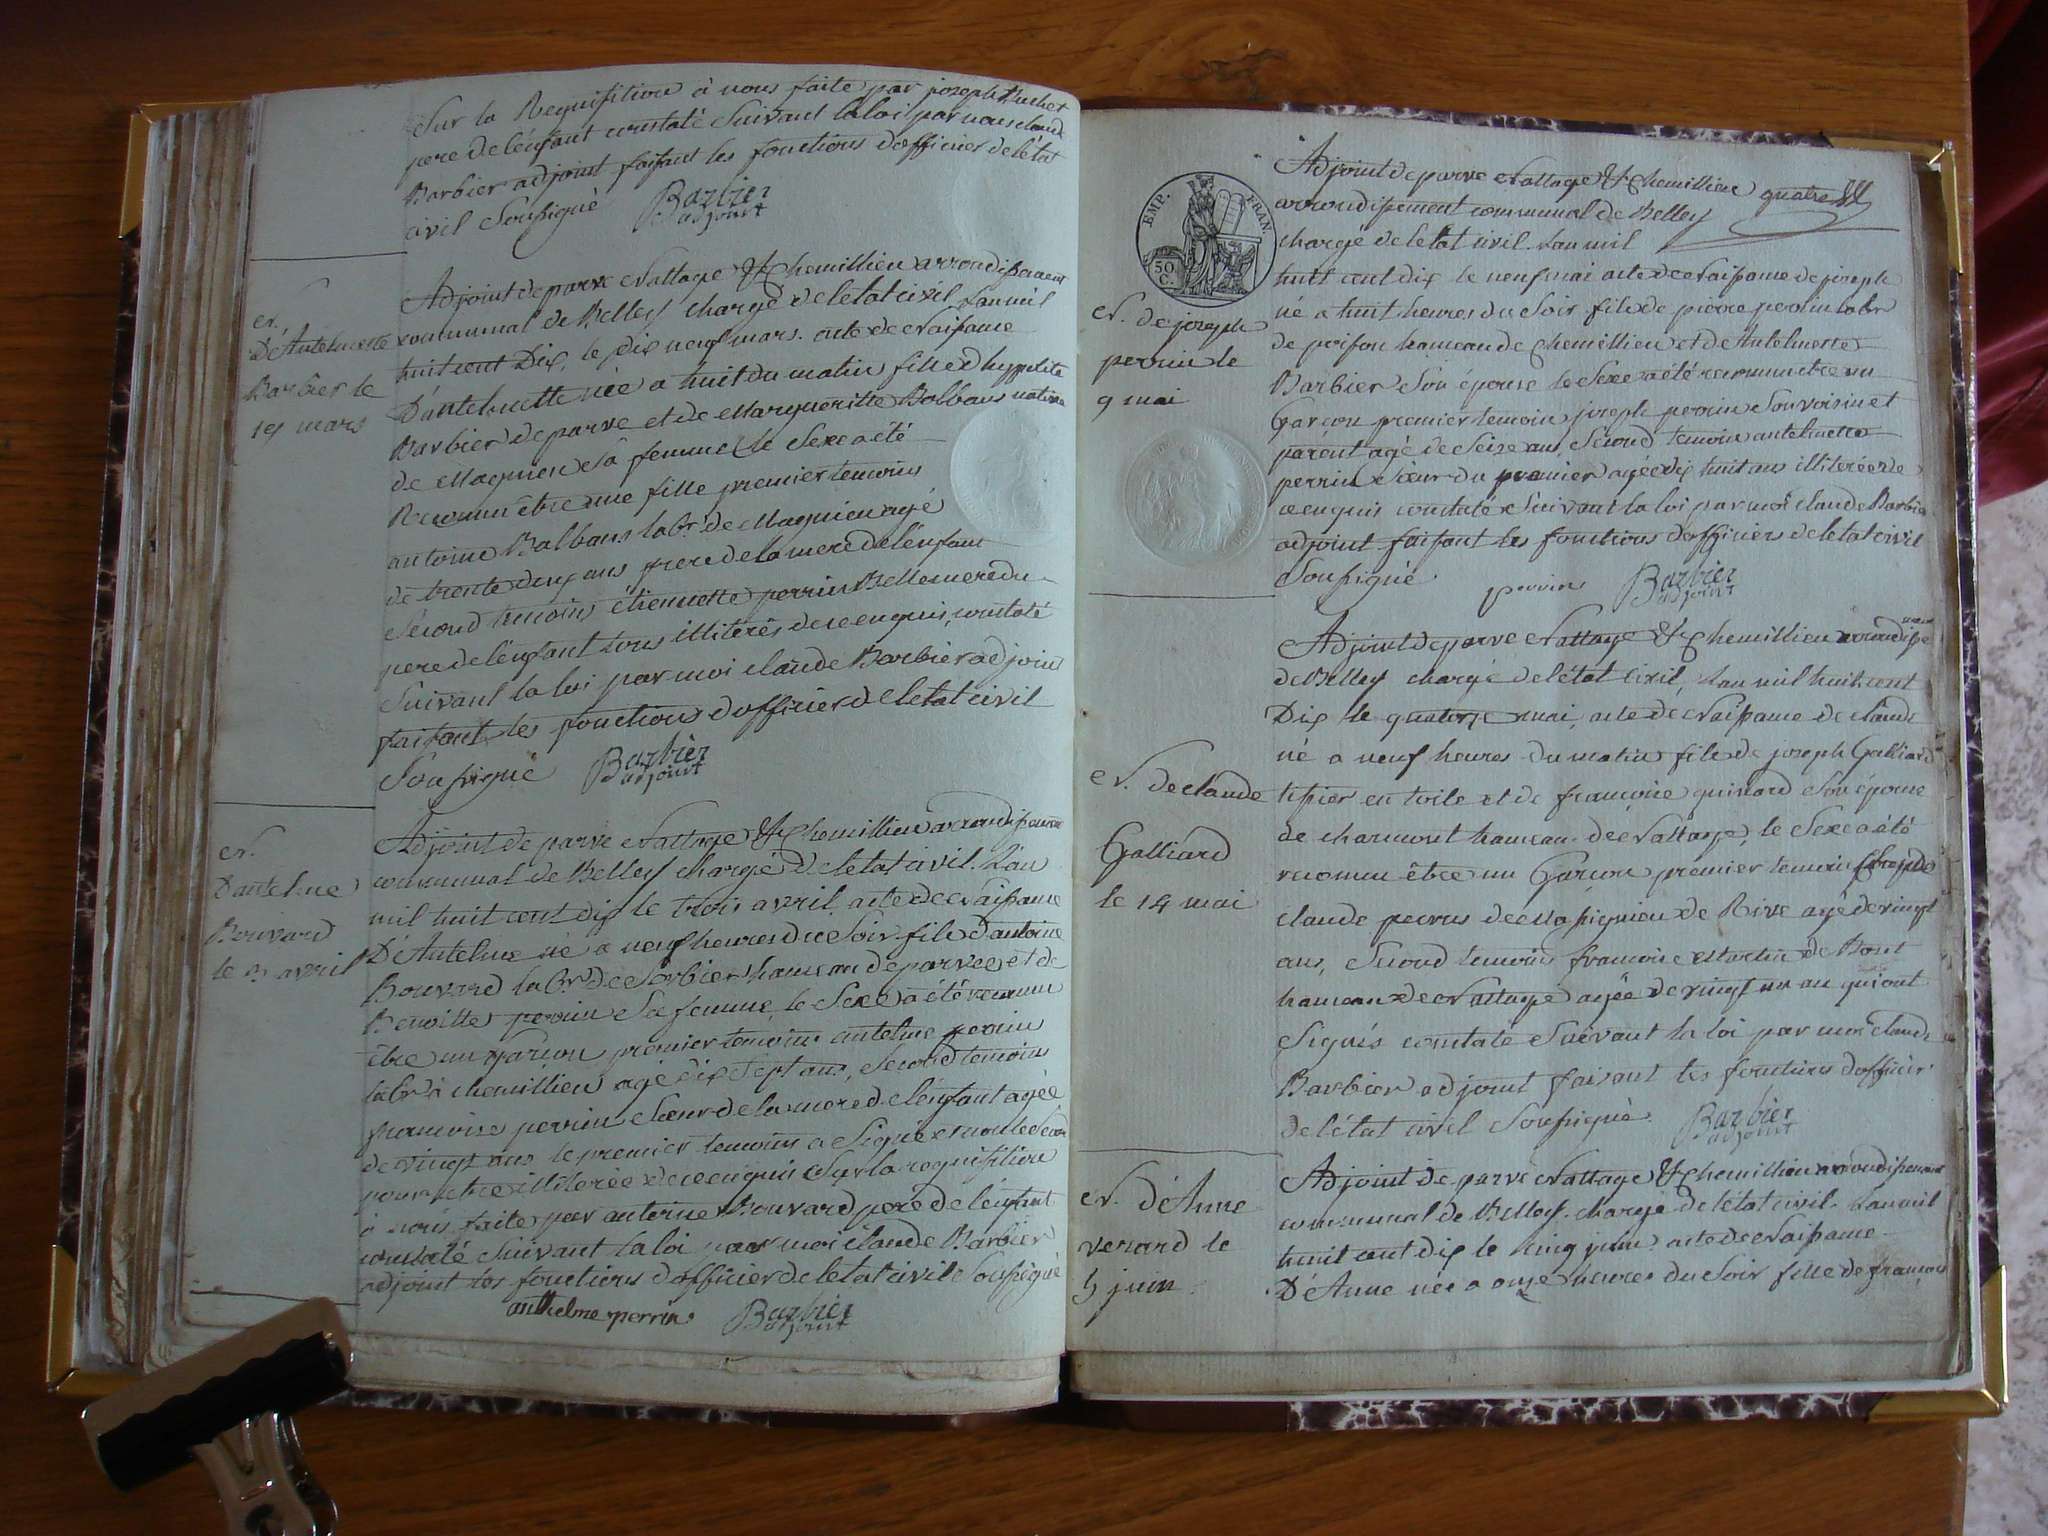 Sur la Requisition à nous faite par joseph
pere de l'enfant constaté Suivant la loi par nous claude
Barbier adjoint faisant les fonctions d'officier de l'état
civil Soussigné
Barbier
adjoint
N.
D'Antelmette
Barbier le
19 mars
Adjoint de parve Nattage & Chemillieu arrondissement
communal de Belley chargé de l'état civil. L'an mil
huit cent Dix, le dix neuf mars. acte de Naissance
D'antelmette née a huit du matin fille d'hyppolite
Barbier de parve et de Margueritte Balbans native
de Magnieu Sa femme, le Sexe a été
Reconnu être une fille premier temoins
antoine Balbans labr. de Magnieu agé
de trente deux ans frere de la mere de l'enfant
Second temoins étiennette perrin Bellemere du
pere de l'enfant tous illiterés de ce enquis, constaté
Suivant la loi par moi claude Barbier adjoint
faisant les fonctions d'officier de l'état civil
Soussigné
Barbier
adjoint
N.
D'antelme
Bouvard
le 3 avril
Adjoint de parve Nattage & Chemillieu arrondissement
communal de Belley chargé de l'état civil. L'an
mil huit cent dix le trois avril acte de Naissance
D'Antelme né a neuf heures du Soir fils d'antoine
Bouvard labr. de Sorbier hameau de parve et de
Benoitte perrin Sa femme, le Sexe a été reconnu
être un garçon premier temoins antelme perrin
labr. à chemillieu agé dix Sept ans, Second temoins
francoise perrin Sœur de la mere de l'enfant agée
de vingt ans le premier temoins a Signé et non le Second
pour être illiterée de ce enquis Sur la requisition
à nous faite par antoine Bouvard pere de l'enfant
constaté Suivant la loi par moi claude Barbier
adjoint les fonctions d'officier de l'état civil Soussigné
anthelme perrin
Barbier
adjoint
EMP. FRAN.
50
C.
Adjoint de parve Nattage & Chemillieu quatre
arrondissement communal de Belley
chargé de l'etat civil. L'an mil
huit cent dix le neuf mai acte de Naissance de joseph
né a huit heures du Soir fils de pierre perrin labr
de poison hameau de Chemillieu et de Antelmette
Barbier Son épouse le Sexe a été reconnu etre un
Garçon premier temoin joseph perrin Son voisin et
parent agé de Seize ans, Second temoin antelmette
perrin Sœur du premier agée dix huit ans illiterée de
ce enquis constaté Suivant la loi par moi claude Barbier
adjoint faisant les fonctions d'officiers de l'etat civil
Soussigné
perrin
Barbier
adjoint
N. de joseph
perrin le
9 mai
Adjoint de parve Nattage & Chemillieu arrondisse
ment
de Belley chargé de l'état civil, L'an mil huit cent
Dix le quatorze mai, acte de Naissance de claude
né a neuf heures du matin fils de joseph Galliard
tissier en toile et de francoise guinard Son épouse
de charmont hameau de Nattage, le Sexe a été
reconnu être un Garçon premier temoin
claude de Massignieu de Rive agé de vingt
ans, Second temoins francoise Martin de Bont
hameau de Nattage agée de vingt un an qui ont
Signés constaté Suivant la loi par moi claude
Barbier adjoint faisant les fonctions d'officier
de l'état civil Soussigné
Barbier
adjoint
N. de claude
Galliard
le 14 mai
Adjoint de parve Nattage & Chemillieu arrondissement
communal de Belley chargé de l'état civil. L'an mil
huit cent dix le cinq juin acte de Naissance
D'Anne née a onze heures du Soir fille de francois
N. d'Anne
verard le
5 juin